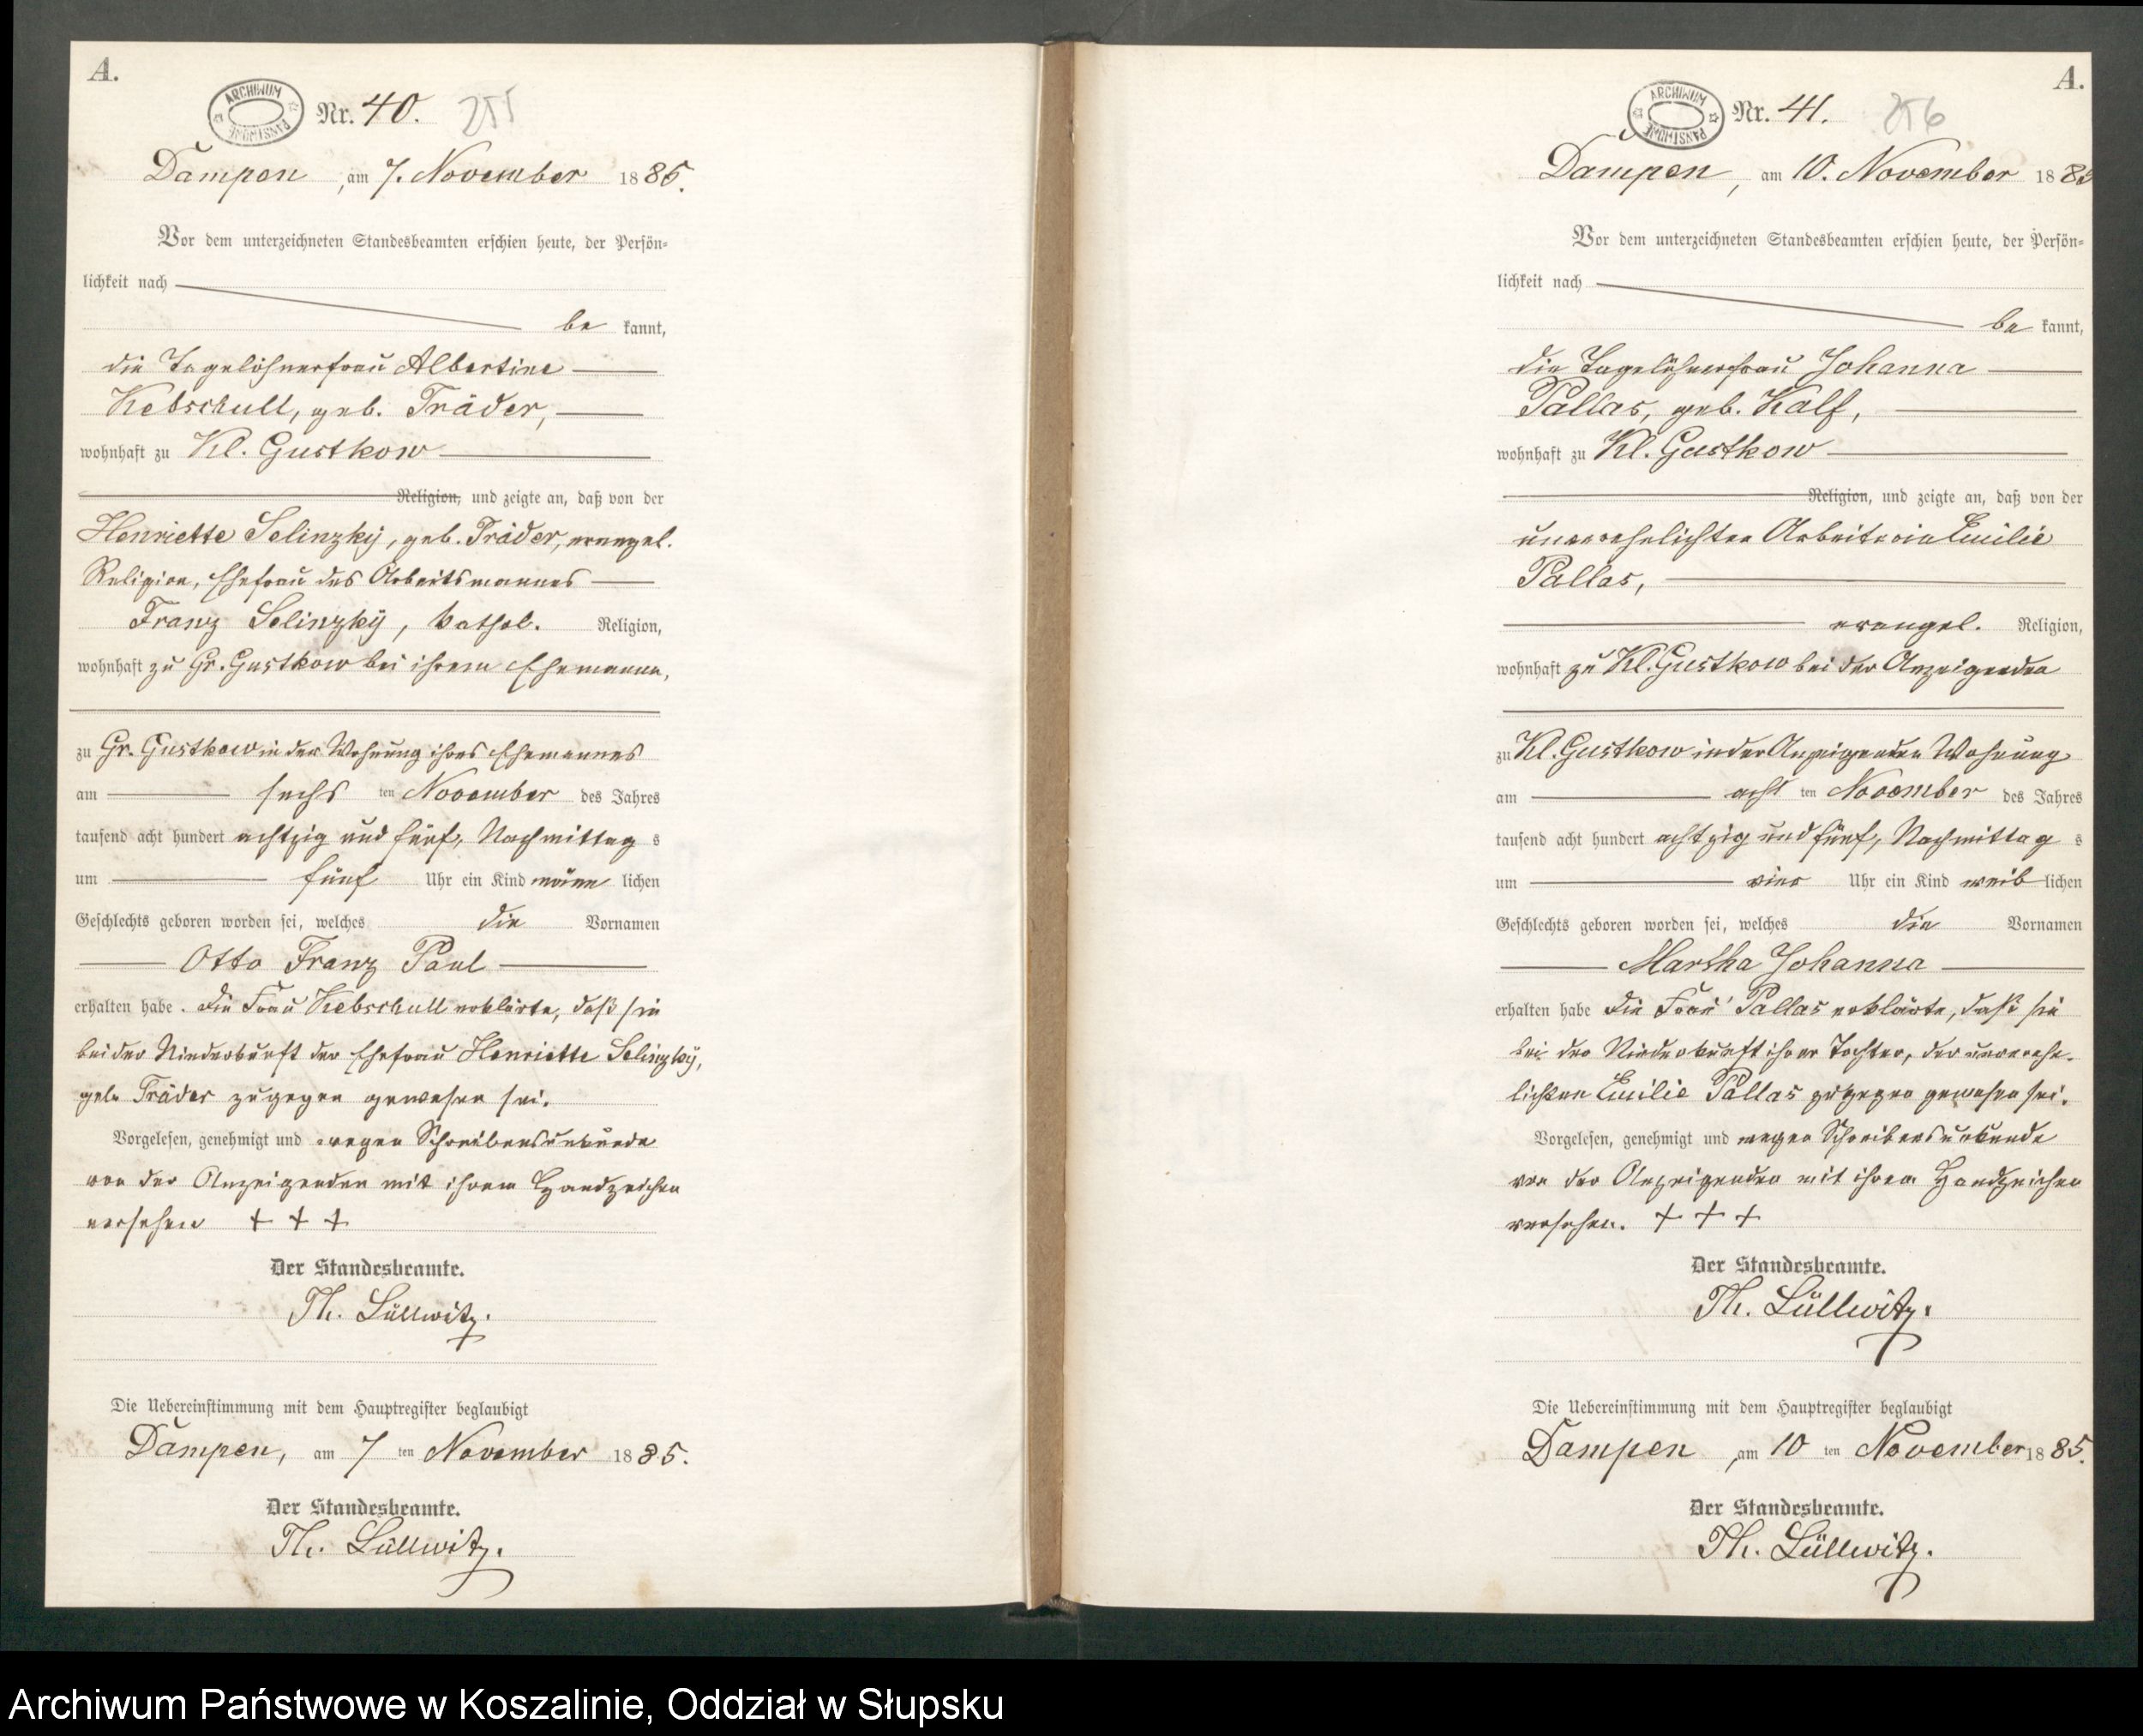 A.
ARCHIWUM PAŃSTWOWE
Nr. 40. 255
Dampen, am 7. November 1885.
Vor dem unterzeichneten Standesbeamten erschien heute, der Persön-
lichkeit nach
be kannt,
die Tagelöhnerfrau Albertine
Kebschull, geb. Träder,
wohnhaft zu Kl. Gustkow
Religion, und zeigte an, daß von der
Henriette Selinzky, geb. Träder, evangel.
Religion, Ehefrau des Arbeitsmannes
Franz Selinzky, kathol. Religion,
wohnhaft zu Gr. Gustkow bei ihrem Ehemanne,
zu Gr. Gustkow in der Wohnung ihres Ehemannes
am sechs ten November des Jahres
tausend acht hundert achtzig und fünf, Nachmittag s
um fünf Uhr ein Kind männ lichen
Geschlechts geboren worden sei, welches die Vornamen
Otto Franz Paul
erhalten habe. Die Frau Kebschull erklärte, daß sie
bei der Niederkunft der Ehefrau Henriette Selinzky,
geb. Träder zugegen gewesen sei.
Vorgelesen, genehmigt und wegen Schreibensunkunde
von der Anzeigenden mit ihrem Handzeichen
versehen + + +
Der Standesbeamte.
Th. Lüllwitz.
Die Uebereinstimmung mit dem Hauptregister beglaubigt
Dampen, am 7 ten November 1885.
Der Standesbeamte.
Th. Lüllwitz.
A.
ARCHIWUM PAŃSTWOWE
Nr. 41. 256
Dampen, am 10. November 1885
Vor dem unterzeichneten Standesbeamten erschien heute, der Persön-
lichkeit nach
be kannt,
die Tagelöhnerfrau Johanna
Pallas, geb. Kalf,
wohnhaft zu Kl. Gustkow
Religion, und zeigte an, daß von der
unverehelichten Arbeiterin Emilie
Pallas,
evangel. Religion,
wohnhaft zu Kl. Gustkow bei der Anzeigenden
zu Kl. Gustkow in der Anzeigenden Wohnung
am acht ten November des Jahres
tausend acht hundert achtzig und fünf, Nachmittag s
um vier Uhr ein Kind weib lichen
Geschlechts geboren worden sei, welches die Vornamen
Martha Johanna
erhalten habe Die Frau Pallas erklärte, daß sie
bei der Niederkunft ihrer Tochter, der unverehe-
lichten Emilie Pallas zugegen gewesen sei.
Vorgelesen, genehmigt und wegen Schreibensunkunde
von der Anzeigenden mit ihrem Handzeichen
versehen. + + +
Der Standesbeamte.
Th. Lüllwitz.
Die Uebereinstimmung mit dem Hauptregister beglaubigt
Dampen, am 10 ten November 1885.
Der Standesbeamte.
Th. Lüllwitz.
Archiwum Państwowe w Koszalinie, Oddział w Słupsku